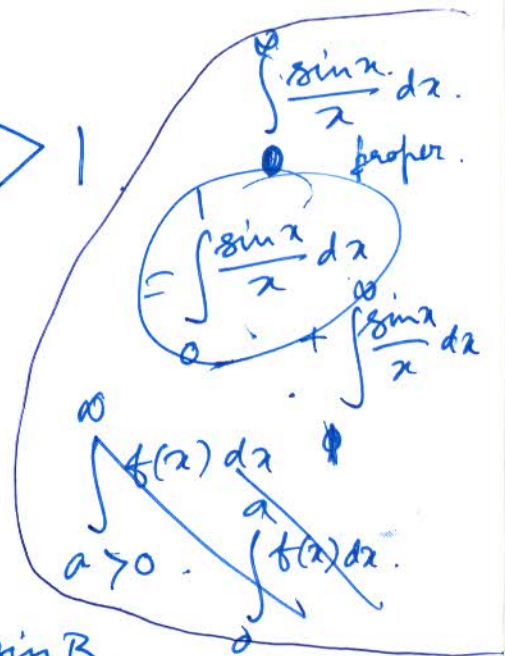 > 1
∫₀^∞ sin x / x dx.
proper.
= ∫₀¹ sin x / x dx
+ ∫₁^∞ sin x / x dx
∫_{a>0}^∞ f(x) dx
∫₀^a f(x) dx.
in B